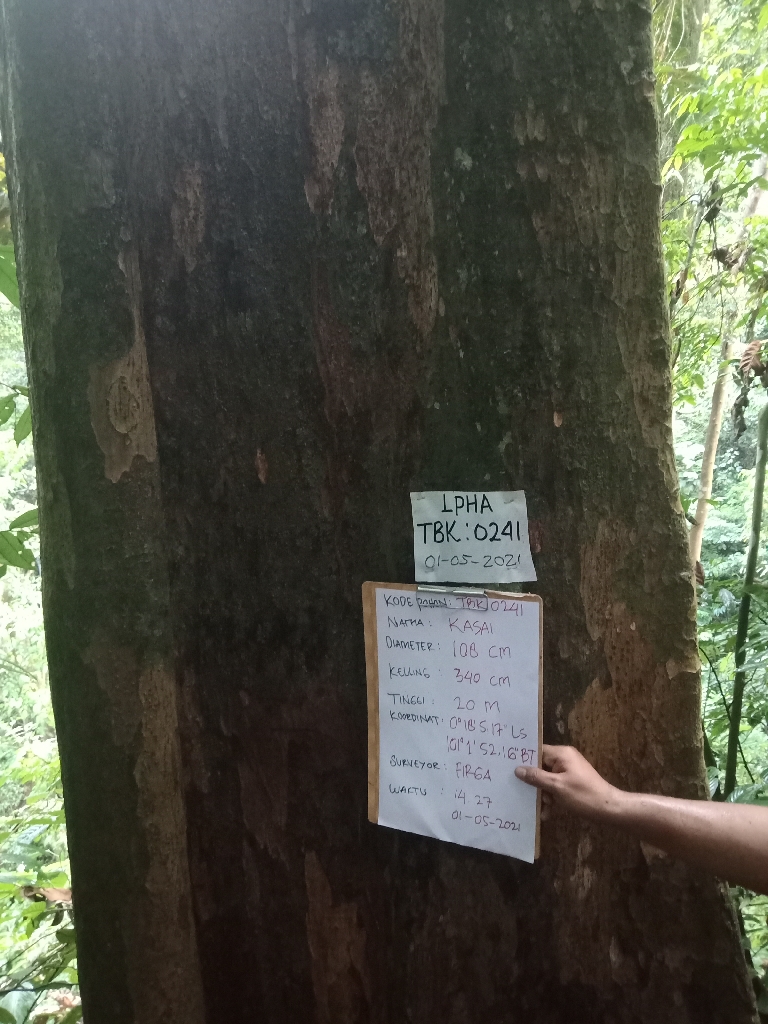 LPHA
TBK:0241
01-05-2021
KODE POHON: TBK 0241
NAMA: KASAI
DIAMETER: 108 CM
KELLING: 340 CM
TINGGI: 20 M
KOORDINAT: 0°18'5.17" LS
101°1'52.16" BT
SURVEYOR: FIRGA
WAKTU: 14.27
01-05-2021